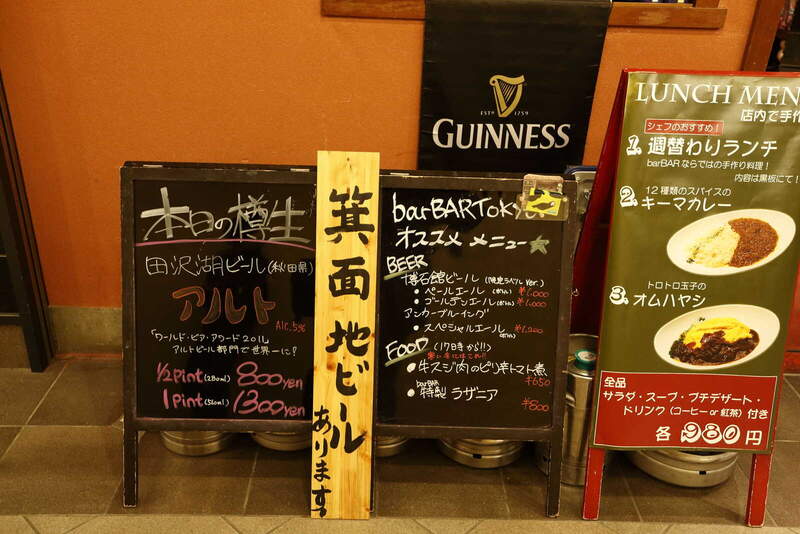 本日の樽生
田沢湖ビール(秋田県)
アルト
Alc.5%
「ワールド・ビア・アワード2011
アルトビール部門で世界一に!
1/2 Pint (280ml) 800yen
1 Pint (560ml) 1300yen
箕面地ビール
あります。
EST 1759
GUINNESS
barBARTOKYO
オススメ メニュー
BEER
博石館ビール (限定ラベル Ver.)
・ペールエール ¥1,000
・ゴールデンエール ¥1,000
アンカーブルーイング
・スペシャルエール ¥1,200
FOOD (17時から!!)
・牛スジ肉のピリ辛トマト煮
¥650
・barBAR
特製 ラザニア
¥800
LUNCH MEN
店内で手作
シェフのおすすめ!
1. 週替わりランチ
barBARならではの手作り料理!
内容は黒板にて!
2. 12種類のスパイスの
キーマカレー
トロトロ玉子の
3. オムハヤシ
全品
サラダ・スープ・プチデザート・
ドリンク(コーヒー or 紅茶)付き
各980円